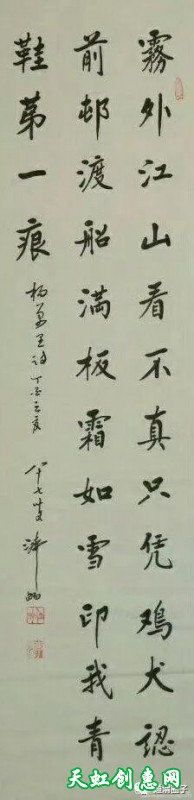 霧外江山看不真只凭鳮犬認
前邨渡船滿板霜如雪印我青
鞋苐一痕
杨萬里诗
八十七叟
天虹创惠网